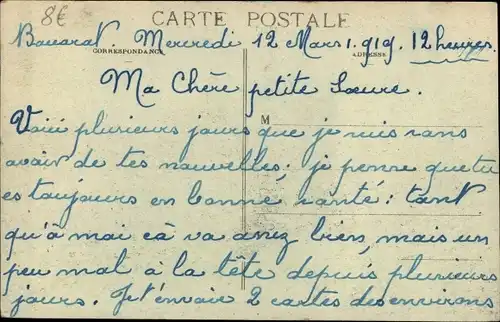 8€
CARTE POSTALE
Baccarat. Mercredi 12 Mars 1919. 12 heures.
CORRESPONDANCE ADRESSE
Ma Chère petite Sœure.
M
Voiii plusieurs jours que je suis sans
avoir de tes nouvelles; je pense que tu
es toujours en bonne santé: tant
qu'à moi çà va assez bien, mais un
peu mal à la tête depuis plusieurs
jours. Je t'envoie 2 cartes des environs